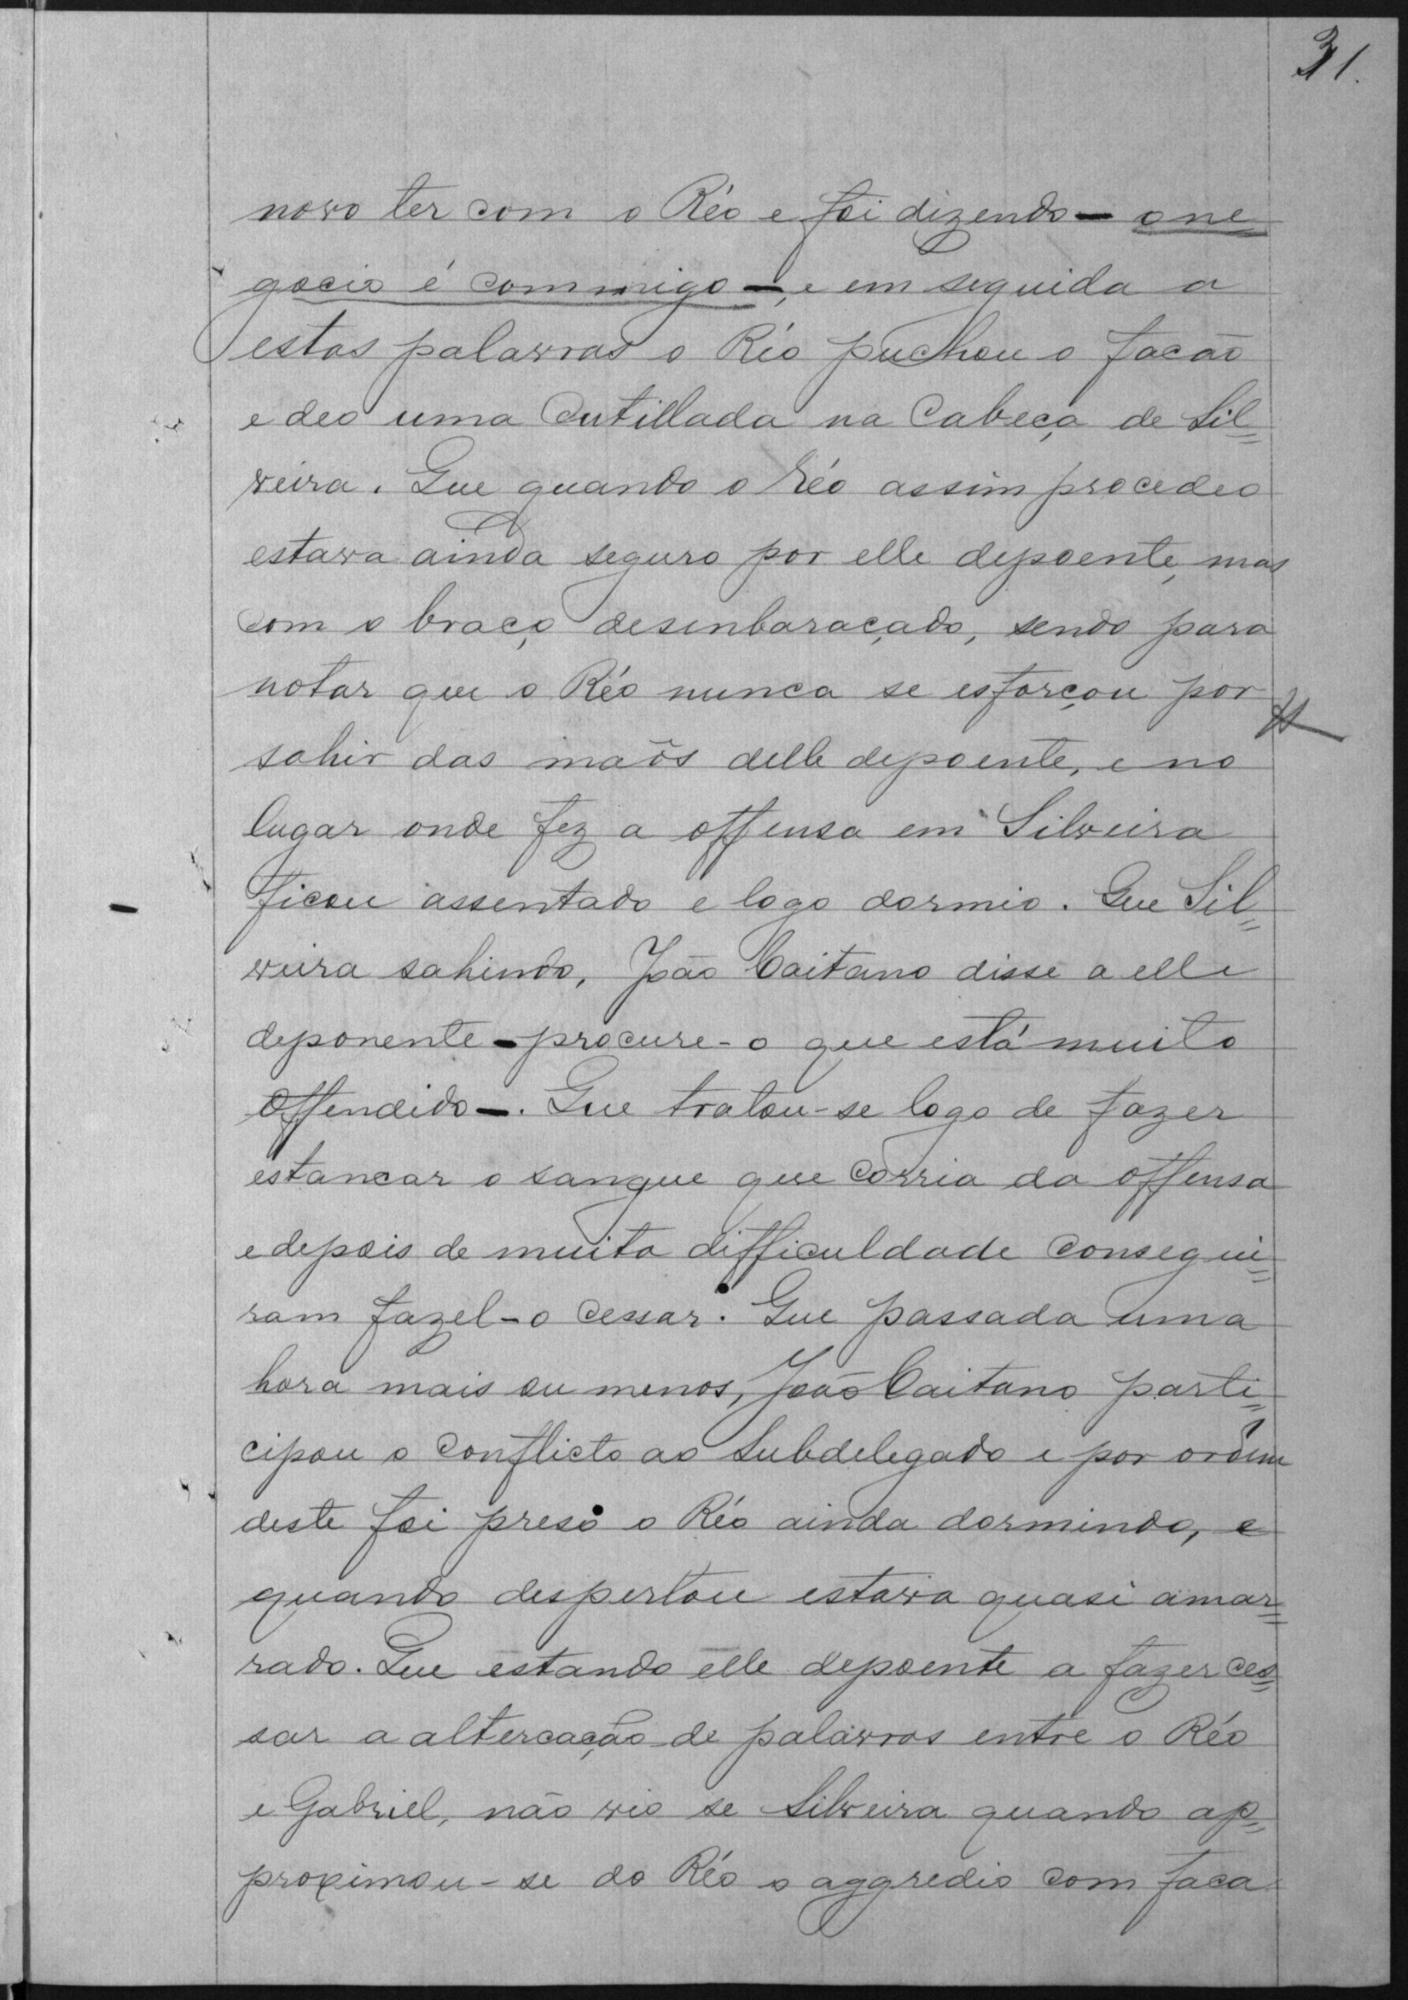 31.
novo ter com o Réo e foi dizendo — o ne
gocio é commigo —, e em seguida a
estas palavras o Réo puchou o facão
e deo uma Cutillada na Cabeça de Sil=
veira. Que quando o Réo assim procedeo
estava ainda seguro por elle depoente, mas
com o braço desenbaraçado, sendo para
notar que o Réo nunca se esforçou por
sahir das maõs delle depoente, e no
lugar onde fez a offensa em Silveira
ficou assentado e logo dormio. Que Sil=
veira sahindo, João Caitano disse a elle
deponente — procure-o que está muito
offendido —. Que tratou-se logo de fazer
estancar o sangue que corria da offensa
e depois de muita difficuldade consegui=
ram fazel-o cessar. Que passada uma
hora mais ou menos, João Caitano parti=
cipou o Conflicto ao Subdelegado e por ordem
deste foi preso o Réo ainda dormindo, e
quando despertou estava quasi amar=
rado. Que estando elle depoente a fazer ces=
sar a altercação de palavras entre o Réo
e Gabriel, não vio se Silveira quando ap=
proximou-se do Réo o aggredio com faca